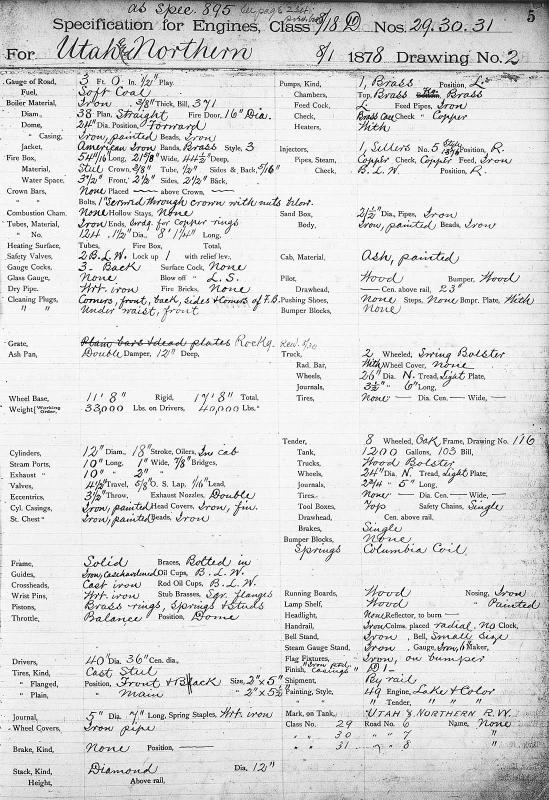 as spec. 895 See page 234
5
Specification for Engines, Class 8/18 D Nos. 29. 30. 31
For Utah & Northern 8/1 1878 Drawing No. 2
Gauge of Road, 3 Ft. 0 In. 1/2" Play.
Fuel, Soft Coal
Boiler Material, Iron 3/8" Thick, Bill, 371
Diam., 38 Plan, Straight Fire Door, 16" Dia.
Dome, 24" Dia. Position, Forward
" Casing, Iron, painted Beads, Iron
Jacket, American Iron Bands, Brass Style, 3
Fire Box, 54 1/16 Long, 21 7/8 Wide, 44 1/2 Deep,
Material, Steel Crown, 3/8" Tube, 1/2" Sides & Back, 5/16"
Water Space, 3 1/2" Front, 2 1/2" Sides, 2 1/2" Back,
Crown Bars, None Placed — above Crown, —
" " Bolts, 1" Screwed through crown with nuts below.
Combustion Cham. None Hollow Stays, None
Tubes, Material, Iron Ends, for copper rings
" No. 124. 1 1/2" Dia., 8' 1 1/4" Long.
Heating Surface, Tubes, Fire Box, Total,
Safety Valves, 2 B.L.W. Lock up 1 with relief lev.
Gauge Cocks, 3. Back Surface Cock, None
Glass Gauge, None Blow off " L. S.
Dry Pipe, Wrt. iron Fire Bricks, None
Cleaning Plugs, Corners, front, back, sides & Corners of F.B.
" " Under waist, front
Grate, Plain bars & dead plates Rockg. Rew. 5/30
Ash Pan, Double Damper, 12" Deep,
Wheel Base, 11' 8" Rigid, 17' 8" Total,
Weight [Working Order, 33,000 Lbs. on Drivers, 40,000 Lbs."
Cylinders, 12" Diam., 18" Stroke, Oilers, In cab
Steam Ports, 10" Long, 1" Wide, 7/8" Bridges,
Exhaust " 10" " 2" "
Valves, 4 1/2" Travel, 5/8" O. S. Lap, 1/16" Lead,
Eccentrics, 3 1/2" Throw, Exhaust Nozzles, Double
Cyl. Casings, Iron, painted Head Covers, Iron, fin.
St. Chest " Iron, painted Beads, Iron
Frame, Solid Braces, Bolted in
Guides, Iron, Casehardened Oil Cups, B.L.W.
Crossheads, Cast iron Rod Oil Cups, B.L.W.
Wrist Pins, Wrt. iron Stub Brasses, Sqr. flanges
Pistons, Brass rings, Springs & Studs
Throttle, Balance Position, Dome
Drivers, 40" Dia. 36" Cen. dia.,
Tires, Kind, Cast Steel
" Flanged, Position, Front & Back Size, 2" x 5"
" Plain, Main " 2" x 5 1/2
Journal, 5" Dia. 7" Long, Spring Staples, Wrt. iron
Wheel Covers, Iron pipe
Brake, Kind, None Position, —
Stack, Kind, Diamond Dia. 12"
Height, Above rail,
Pumps, Kind, 1, Brass Position, L.
Chambers, Top, Brass Brass
Feed Cock, L. Feed Pipes, Iron
Check, Brass Case Check " Copper
Heaters, With
Injectors, 1, Sellers No. 5 Style 1876 Position, R.
Pipes, Steam, Copper Check, Copper Feed, Iron
Check, B. L. W. Position, R.
Sand Box, 2 1/2" Dia., Pipes, Iron
Body, Iron, painted Beads, Iron
Cab, Material, Ash, painted
Pilot, Wood Bumper, Wood
Drawhead, — Cen. above rail, 23"
Pushing Shoes, None Steps, None Bmpr. Plate, With
Bumper Blocks, None
Truck, 2 Wheeled, Swing Bolster
Rad. Bar, With Wheel Cover, None
Wheels, 26" Dia. N. Tread, Light Plate,
Journals, 3 1/2" " 6" Long,
Tires, None — Dia. Cen. — Wide, —
Tender, 8 Wheeled, Oak, Frame, Drawing No. 116
Tank, 1200 Gallons, 103 Bill,
Trucks, Wood Bolster
Wheels, 24" Dia. N. Tread, Light Plate;
Journals, 2 3/4 " 5" Long,
Tires. None — Dia Cen. — Wide, —
Tool Boxes, Top Safety Chains, Single
Drawhead, Cen. above rail,
Brakes, Single
Bumper Blocks, None
Springs Columbia Coil
Running Boards, Wood Nosing, Iron
Lamp Shelf, Wood " Painted
Headlight, None Reflector, to burn —
Handrail, Iron Colms. placed radial. No Clock,
Bell Stand, Iron, Bell, Small size
Steam Gauge Stand, Iron, Gauge, Iron, 6" Maker,
Flag Fixtures, Iron, on bumper
Finish, "Iron ped. casings" D 1—
Shipment, By rail
Painting, Style, 49 Engine, Lake & Color
" " Tender, " "
Mark, on Tank, "UTAH & NORTHERN R.W."
Class No. 29 Road No. 6 Name, None
" " 30 " " 7 "
" " 31 " " 8 "